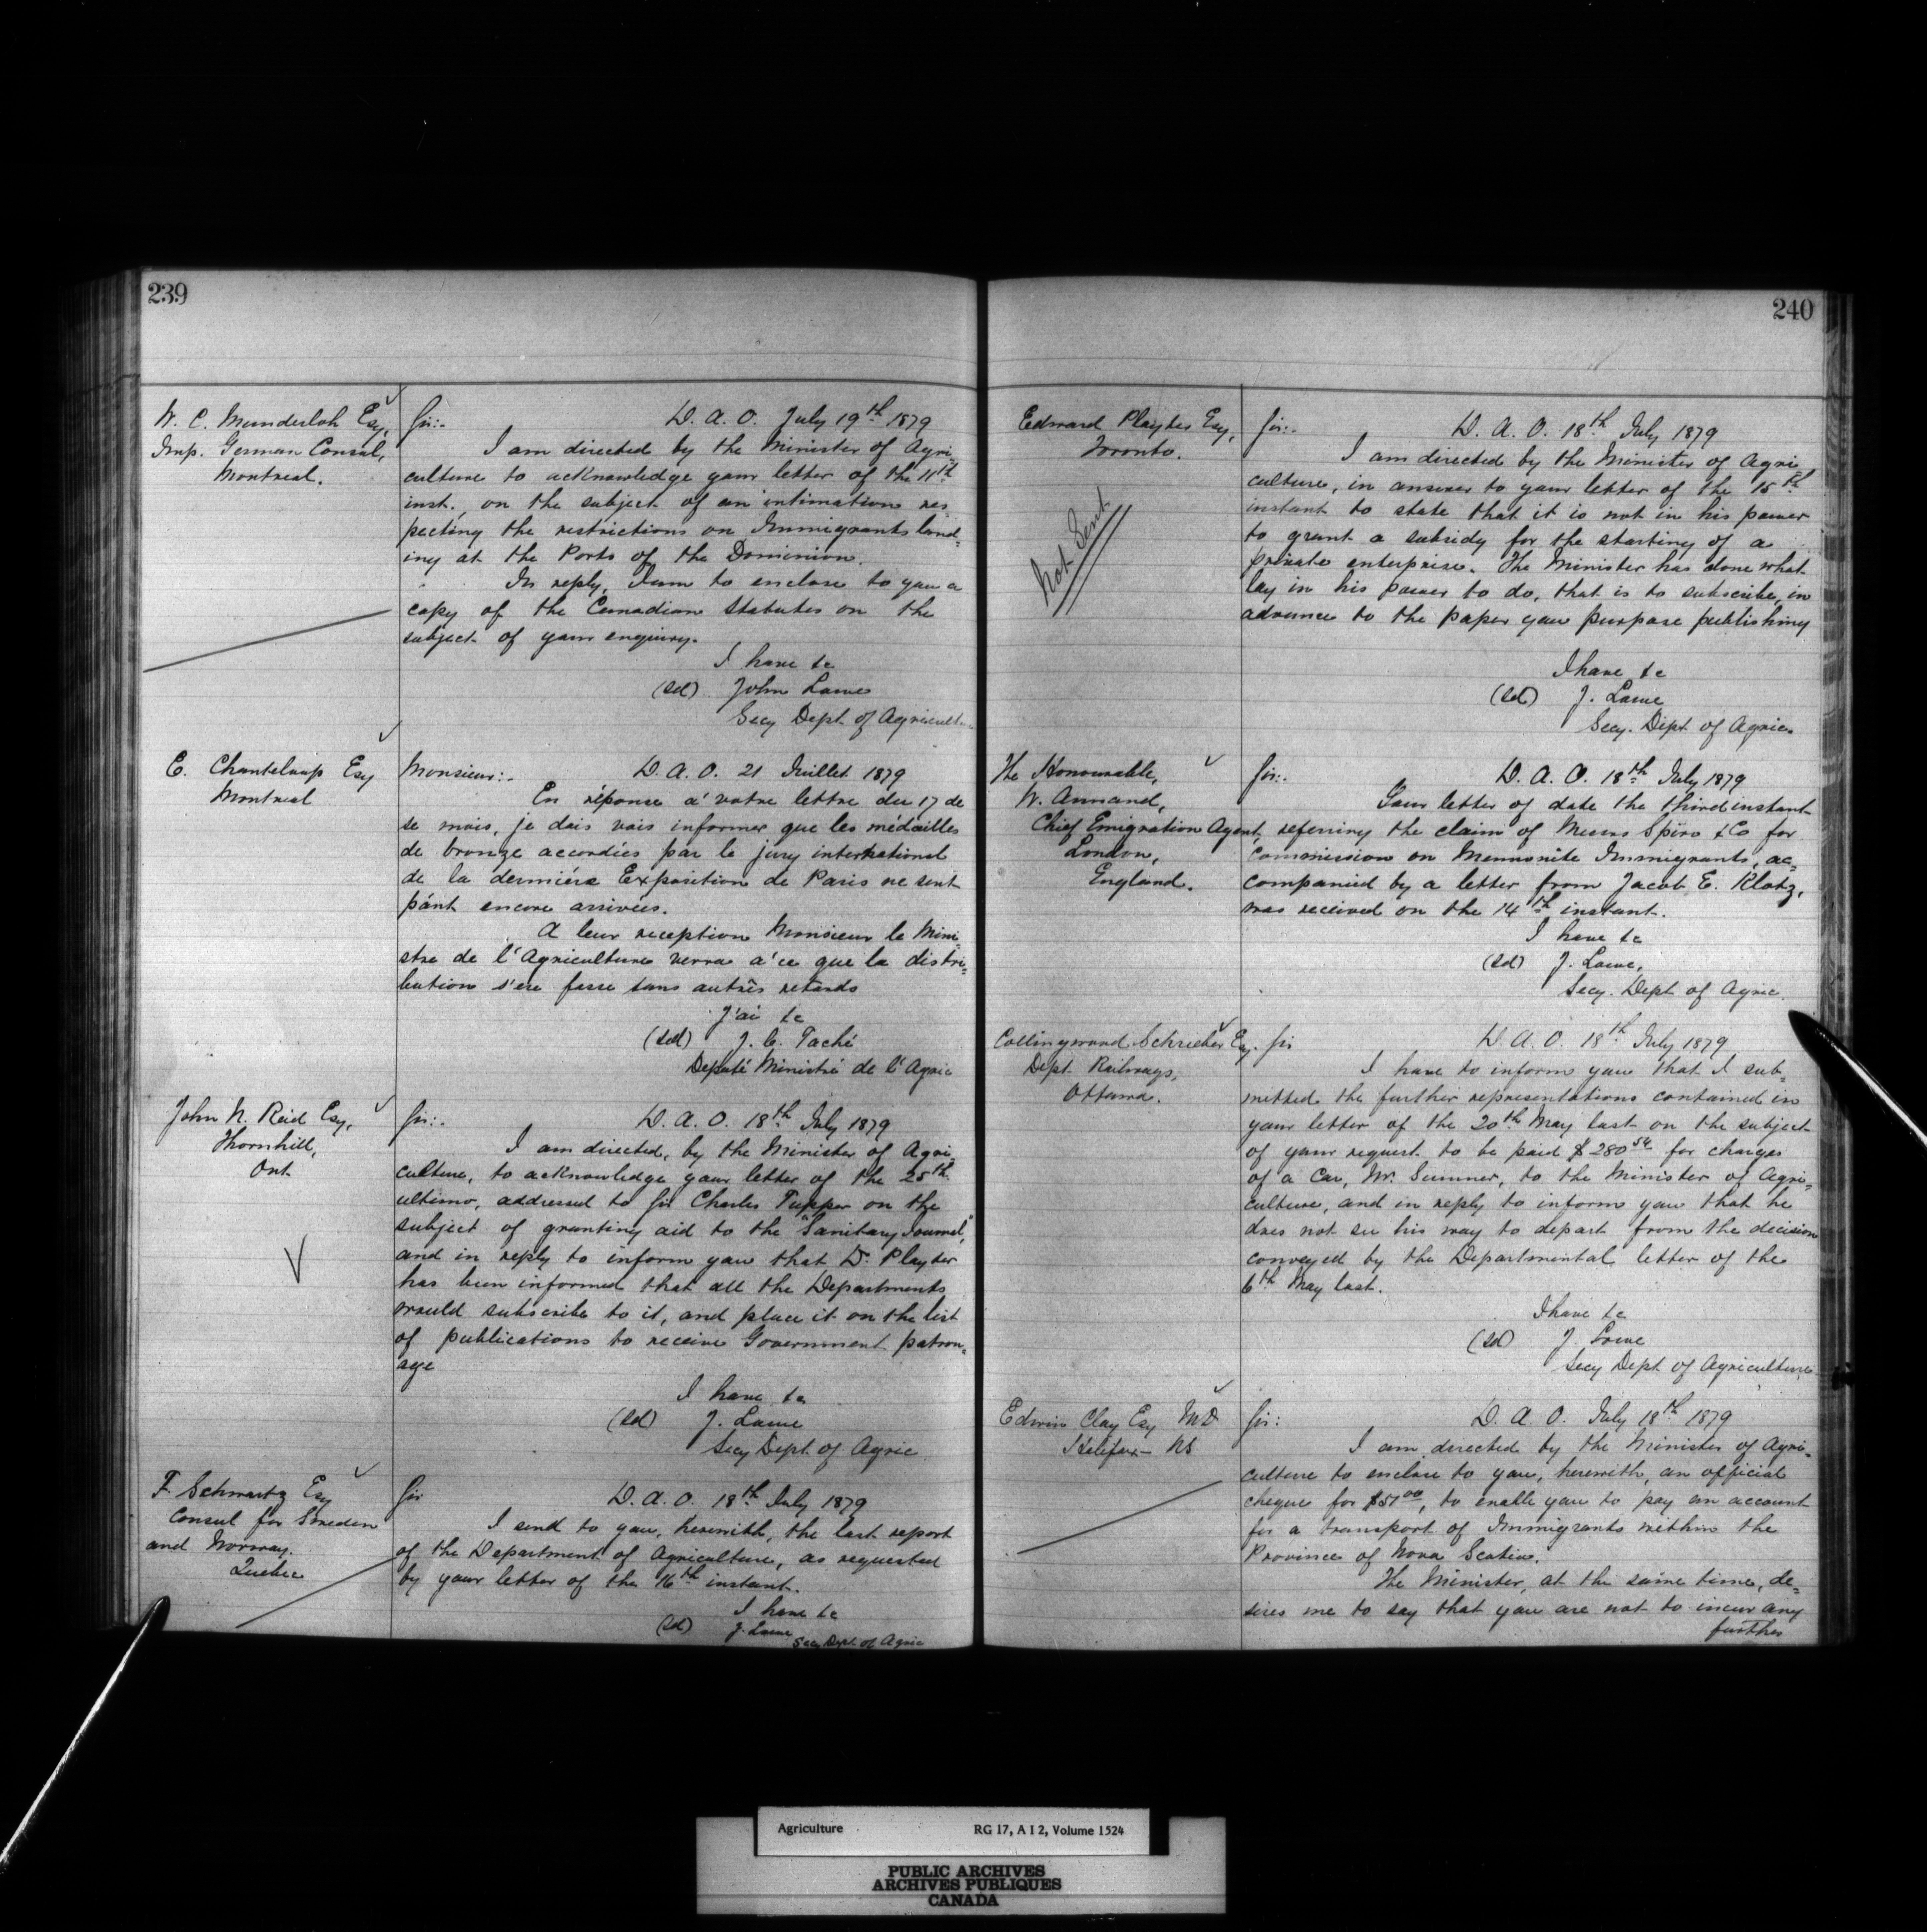 239
W. C. Munderloh Esq,
Imp. German Consul,
Montreal.
Sir:- D. A. O. July 19th 1879
I am directed by the Minister of Agri-
culture to acknowledge your letter of the 11th
inst., on the subject of an intimation res-
pecting the restrictions on Immigrants land-
ing at the Ports of the Dominion.
In reply, I am to enclose to you a
copy of the Canadian Statutes on the
subject of your enquiry.
I have &c
(Sd) John Lowe
Secy Dept. of Agricult
E. Chanteloup Esq
Montreal
Monsieur:- D. A. O. 21 Juillet 1879
En réponse a' votre lettre du 17 de
se mois, je dois vais informer que les médailles
de bronze accordées par le jury international
de la dernière Exposition de Paris ne sont
point encore arrivées.
A leur reception Monsieur le Mini-
stre de l'Agriculture verra a'ce que la distri-
bution s'en fasse sans autrês retards
J'ai &c
(Sd) J. C. Taché
Deputé Ministré de l'Agric
John N. Reid Esq,
Thornhill,
Ont
Sir:- D. A. O. 18th July 1879
I am directed, by the Minister of Agri-
culture, to acknowledge your letter of the 25th
ultimo, addressed to Sir Charles Tupper on the
subject of granting aid to the "Sanitary Journal,"
and in reply to inform you that Dr. Playter
has been informed that all the Departments
would subscribe to it, and place it on the list
of publications to receive Government patron-
age
I have &c
(Sd) J. Lowe
Secy Dept. of Agric
F. Schwartz Esq
Consul for Sweden
and Norway.
Quebec
Sir D. A. O. 18th July 1879
I send to you, herewith, the last report
of the Department of Agriculture, as requested
by your letter of the 16th instant.
I have &c
(Sd) J. Lowe
Secy Dept. of Agric
240
Edward Playter Esq,
Toronto.
Not Sent
Sir:- D. A. O. 18th July 1879
I am directed by the Minister of Agri-
culture, in answer to your letter of the 15th
instant to state that it is not in his power
to grant a subsidy for the starting of a
private enterprise. The Minister has done what
lay in his power to do, that is to subscribe, in
advance to the paper you purpose publishing
I have &c
(Sd) J. Lowe
Secy. Dept. of Agric.
The Honourable,
W. Annand,
Chief Emigration Agent,
London,
England.
Sir:- D. A. O. 18th July 1879
Your letter of date the third instant
referring the claim of Messrs Spiro & Co for
commission on Mennonite Immigrants, ac-
companied by a letter from Jacob E. Klotz,
was received on the 14th instant.
I have &c
(Sd) J. Lowe,
Secy. Dept. of Agric.
Collingwood Schreiber Esq.
Dept. Railways,
Ottawa.
Sir D. A. O. 18th July 1879
I have to inform you that I sub-
mitted the further representations contained in
your letter of the 20th May last on the subject
of your request to be paid $280 54 for charges
of a Car, Mr. Sumner, to the Minister of Agri-
culture, and in reply to inform you that he
does not see his way to depart from the decision
conveyed by the Departmental letter of the
6th May last.
I have &c
(Sd) J. Lowe
Secy Dept. of Agriculture
Edwin Clay Esq MD
Halifax - NS
Sir: D. A. O. July 18th 1879
I am directed by the Minister of Agri-
culture to enclose to you, herewith, an official
cheque for $51 00, to enable you to pay an account
for a transport of Immigrants within the
Province of Nova Scotia.
The Minister, at the same time, de-
sires me to say that you are not to incur any
further
Agriculture RG 17, A I 2, Volume 1524
PUBLIC ARCHIVES
ARCHIVES PUBLIQUES
CANADA